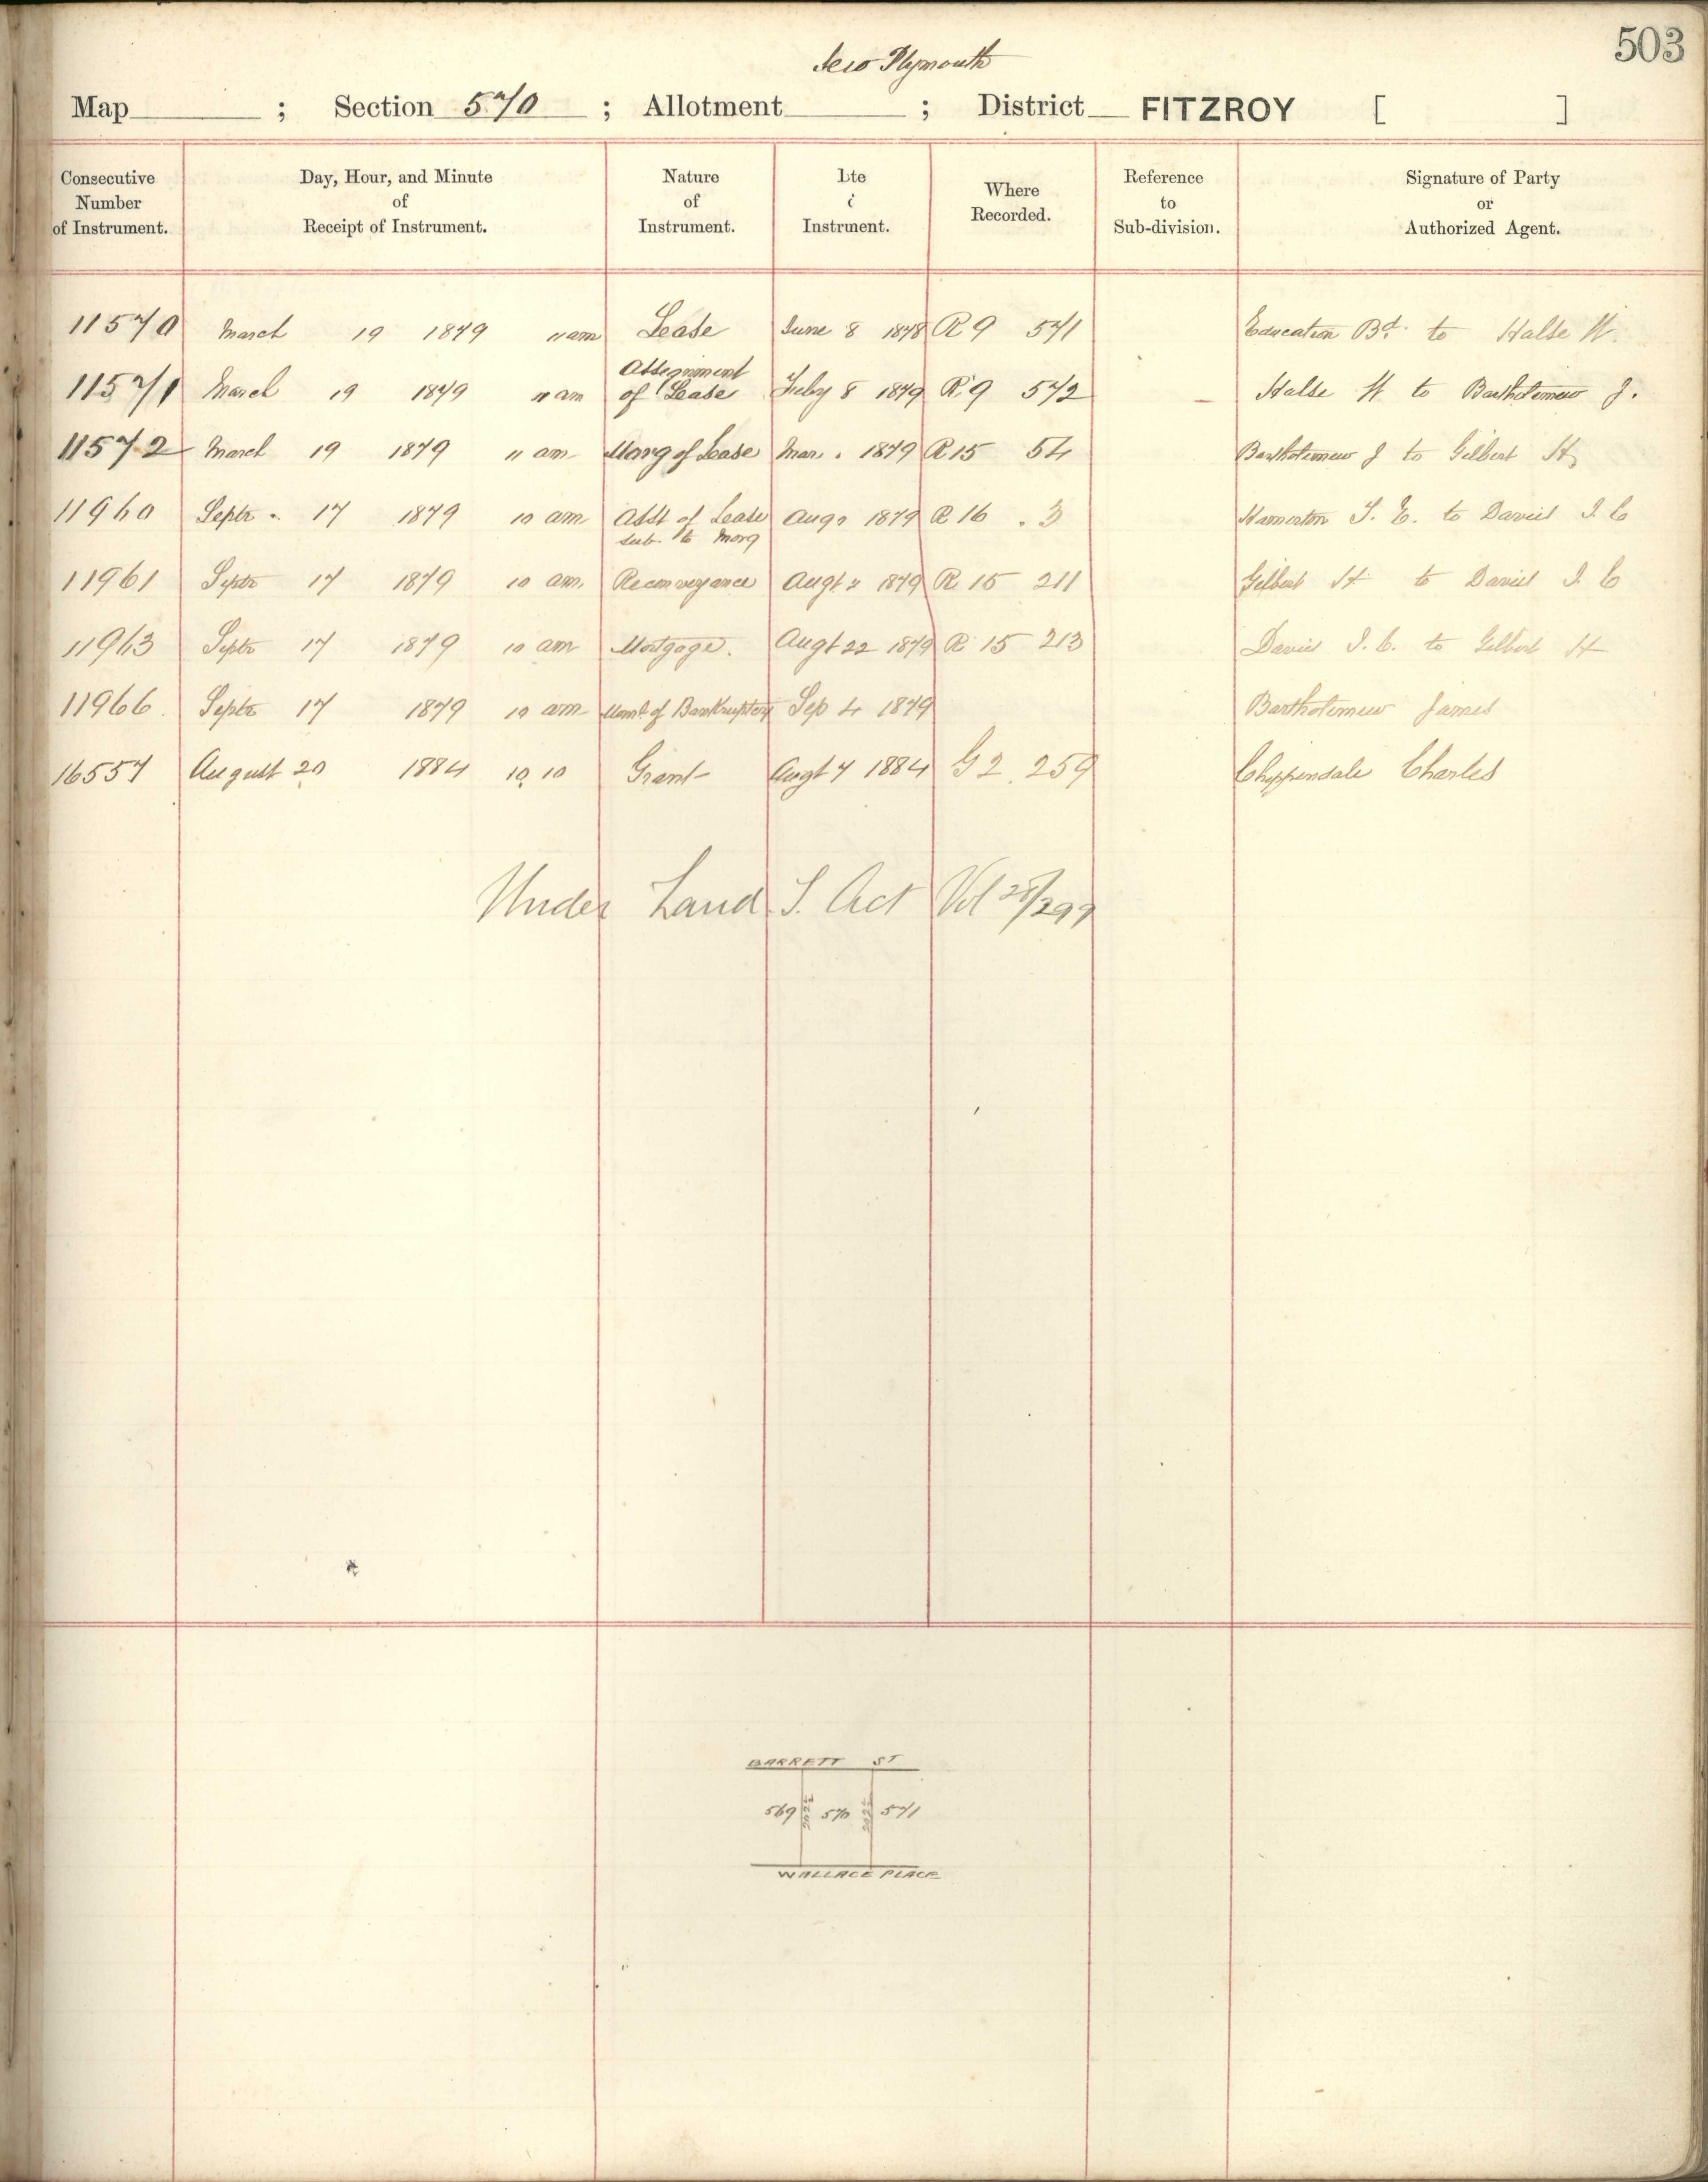 503
New Plymouth
Map ; Section 570 ; Allotment ; District FITZROY [ ]
Consecutive Number of Instrument. Day, Hour, and Minute of Receipt of Instrument. Nature of Instrument. Where Recorded. Reference to Sub-division. Signature of Party or Authorized Agent.
11570 March 19 1879 11 am Lease June 8 1878 R 9 571 Education Bd. to Halse W.
11571 March 19 1879 11 am Assignment of Lease Feby 8 1879 R 9 572 Halse H to Bartholomew J.
11572 March 19 1879 11 am Morg of Lease Mar. 1879 R 15 54 Bartholomew J to Gilbert H
11960 Septr 17 1879 10 am Asst of Lease sub. to Morg Aug 1879 R 16 3 Hamerton T. E. to Davies I. C
11961 Septr 17 1879 10 am. Reconveyance Augt 1879 R 15 211 Gilbert H to Davies I. C
11963 Septr 17 1879 10 am Mortgage. Augt 22 1879 R 15 213 Davies I. C. to Gilbert H
11966 Septr 17 1879 10 am of Bankruptcy Sep 4 1879 Bartholomew James
16557 August 20 1884 10 10 Grant Augt 7 1884 G 2. 259 Chippendale Charles
Under Land T. Act Vol 28/299
BARRETT ST
569 570 571
WALLACE PLACE